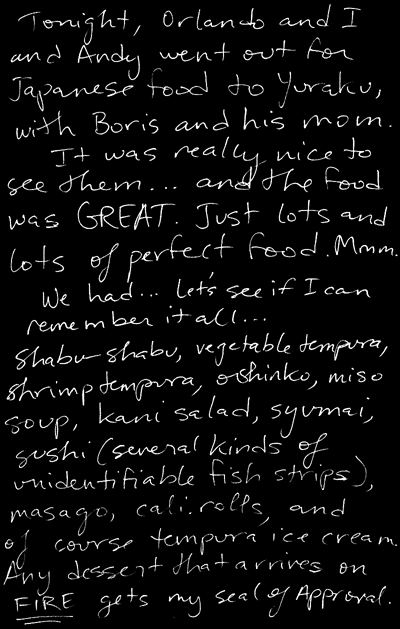 Tonight, Orlando and I
and Andy went out for
Japanese food to Yuraku,
with Boris and his mom.
It was really nice to
see them... and the food
was GREAT. Just lots and
lots of perfect food. Mmm.
We had... let's see if I can
remember it all...
Shabu-shabu, vegetable tempura,
shrimp tempura, oshinko, miso
soup, kani salad, syumai,
sushi (several kinds of
unidentifiable fish strips),
masago, cali. rolls, and
of course tempura ice cream.
Any dessert that arrives on
FIRE gets my seal of Approval.